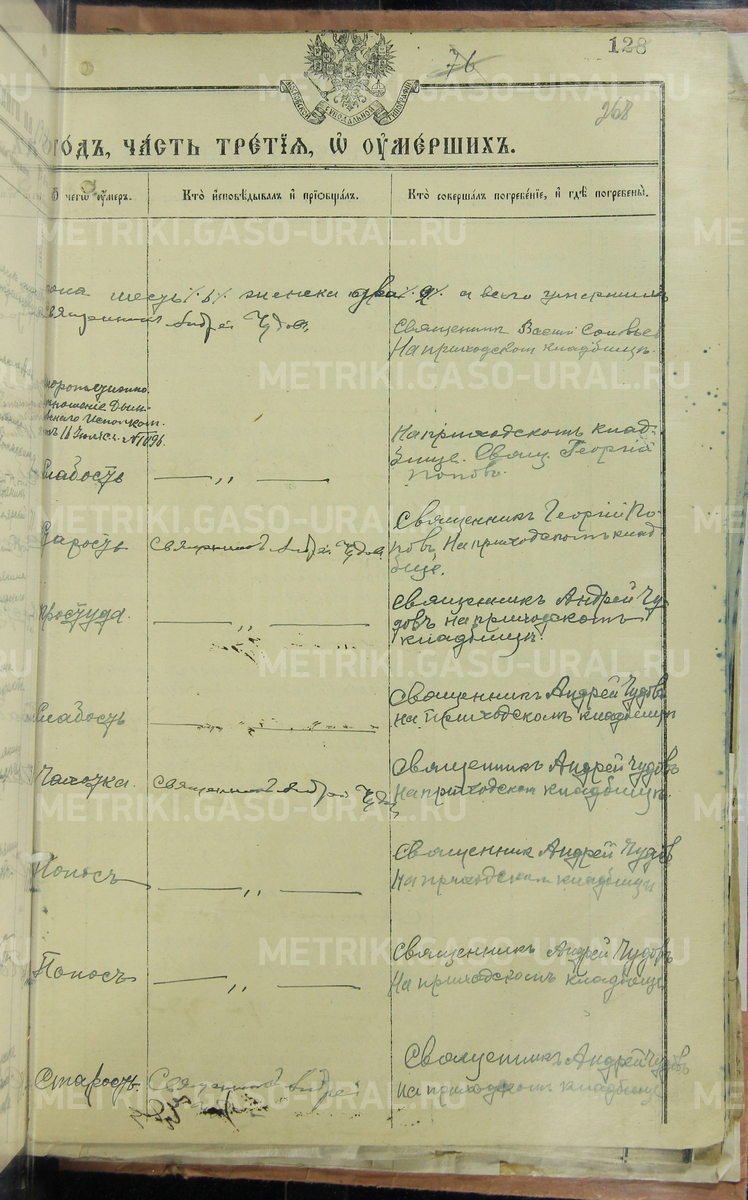 128
76
268
МОСКОВСКОЙ СИНОДАЛЬНОЙ ТИПОГРАФІИ
го́дъ, ча́сть тре́тїѧ, ѡ҆ оу҆ме́ршихъ.
чегѡ̀ оу҆́меръ.
Кто̀ и҆сповѣ́дывалъ и҆ прїѡбща́лъ.
Кто̀ соверша́лъ погребе́нїе, и҆ гдѣ̀ погребены̀.
шесть /.6/. женска два /. 2/. а всего умерших
Священникъ Андрей Чудовъ
Священникъ Василій Соловьев
На приходскомъ кладбищѣ.
отношеніе
16 Іюля. № 1096.
На приходскомъ клад-
бище. Свящ. Георгій
Поповъ.
Слабость
— ,, —
Священникъ Георгій По-
повъ, На приходскомъ клад
бище.
Старость
Священникъ Андрей Чудов.
Простуда.
— ,, —
Священникъ Андрей Чу-
довъ на приходскомъ
кладбищѣ.
Слабость
— ,, —
Священникъ Андрей Чудовъ
на приходскомъ кладбищѣ
Чахотка.
Священникъ Андрей Чудов
Священникъ Андрей Чудовъ
На приходском кладбищѣ.
Поносъ
— ,, —
Священник Андрей Чудов
На приходском кладбищѣ
Поносъ
— ,, —
Священникъ Андрей Чудовъ
На приходскомъ кладбище
Старость
Священник Андрей
Священникъ Андрей Чудовъ
на приходскомъ кладбище
METRIKI.GASO-URAL.RU